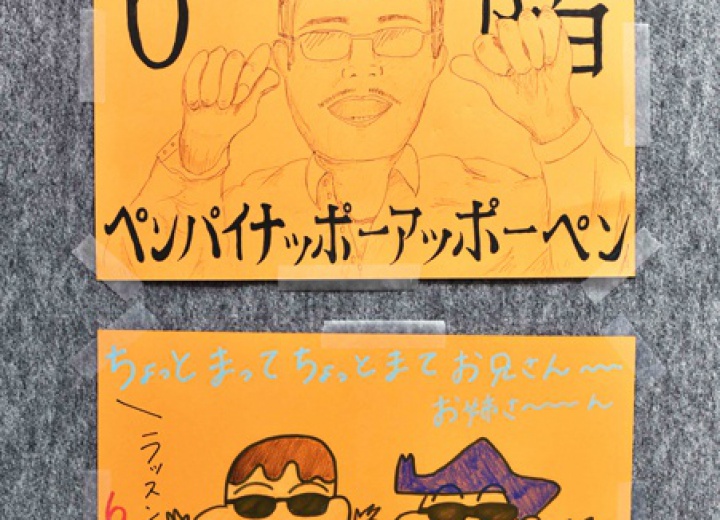 ペンパイナッポーアッポーペン
ちょっとまってちょっとまてお兄さん〜〜
お姉さ〜〜〜ん
ラッスン